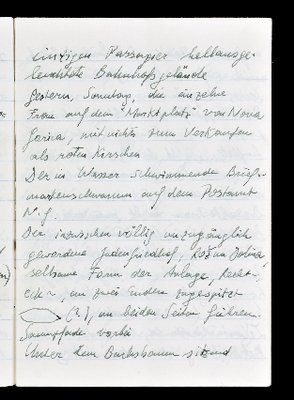 einzigen Passagier hellausge-
leuchtete Bahnhofsgelände
Gestern, Sonntag, die einzelne
Frau auf dem "Marktplatz" von Nova
Gorica, mit nichts zum Verkaufen
als roten Kirschen
Der im Wasser schwimmende Brief-
markenschwamm auf dem Postamt
N. G.
Der inzwischen völlig unzugänglich
gewordene Judenfriedhof, Rožna Dolina,
seltsame Form der Anlage, Recht-
eck, an zwei Enden zugespitzt
(?), an beiden Seiten führen
Saumpfade vorbei
Unter dem Buchsbaum sitzend